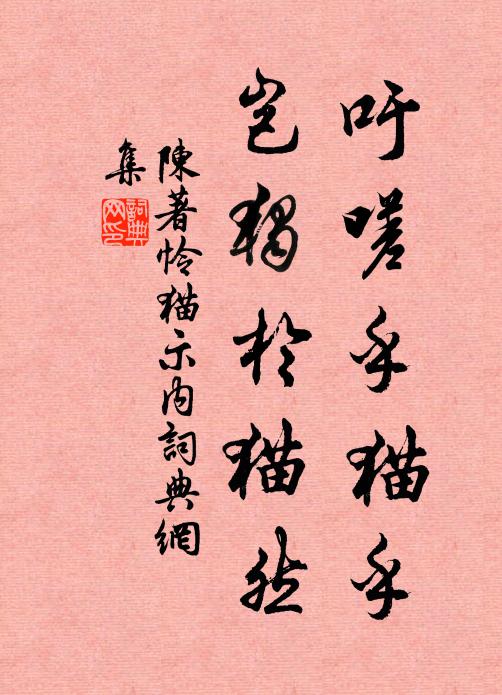 吁嗟乎猫乎
岂獨於猫然
陳著怜猫示内詞典網
集
詞典
网印